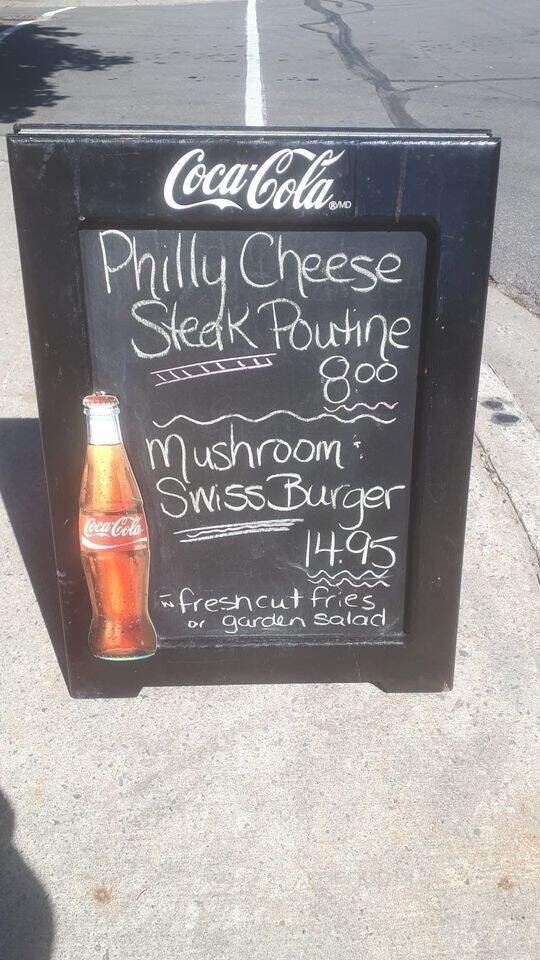 Coca-Cola ®/MD
Philly Cheese
Steak Poutine
8.00
Mushroom &
Swiss Burger
14.95
w fresh cut fries
or garden salad
Coca-Cola